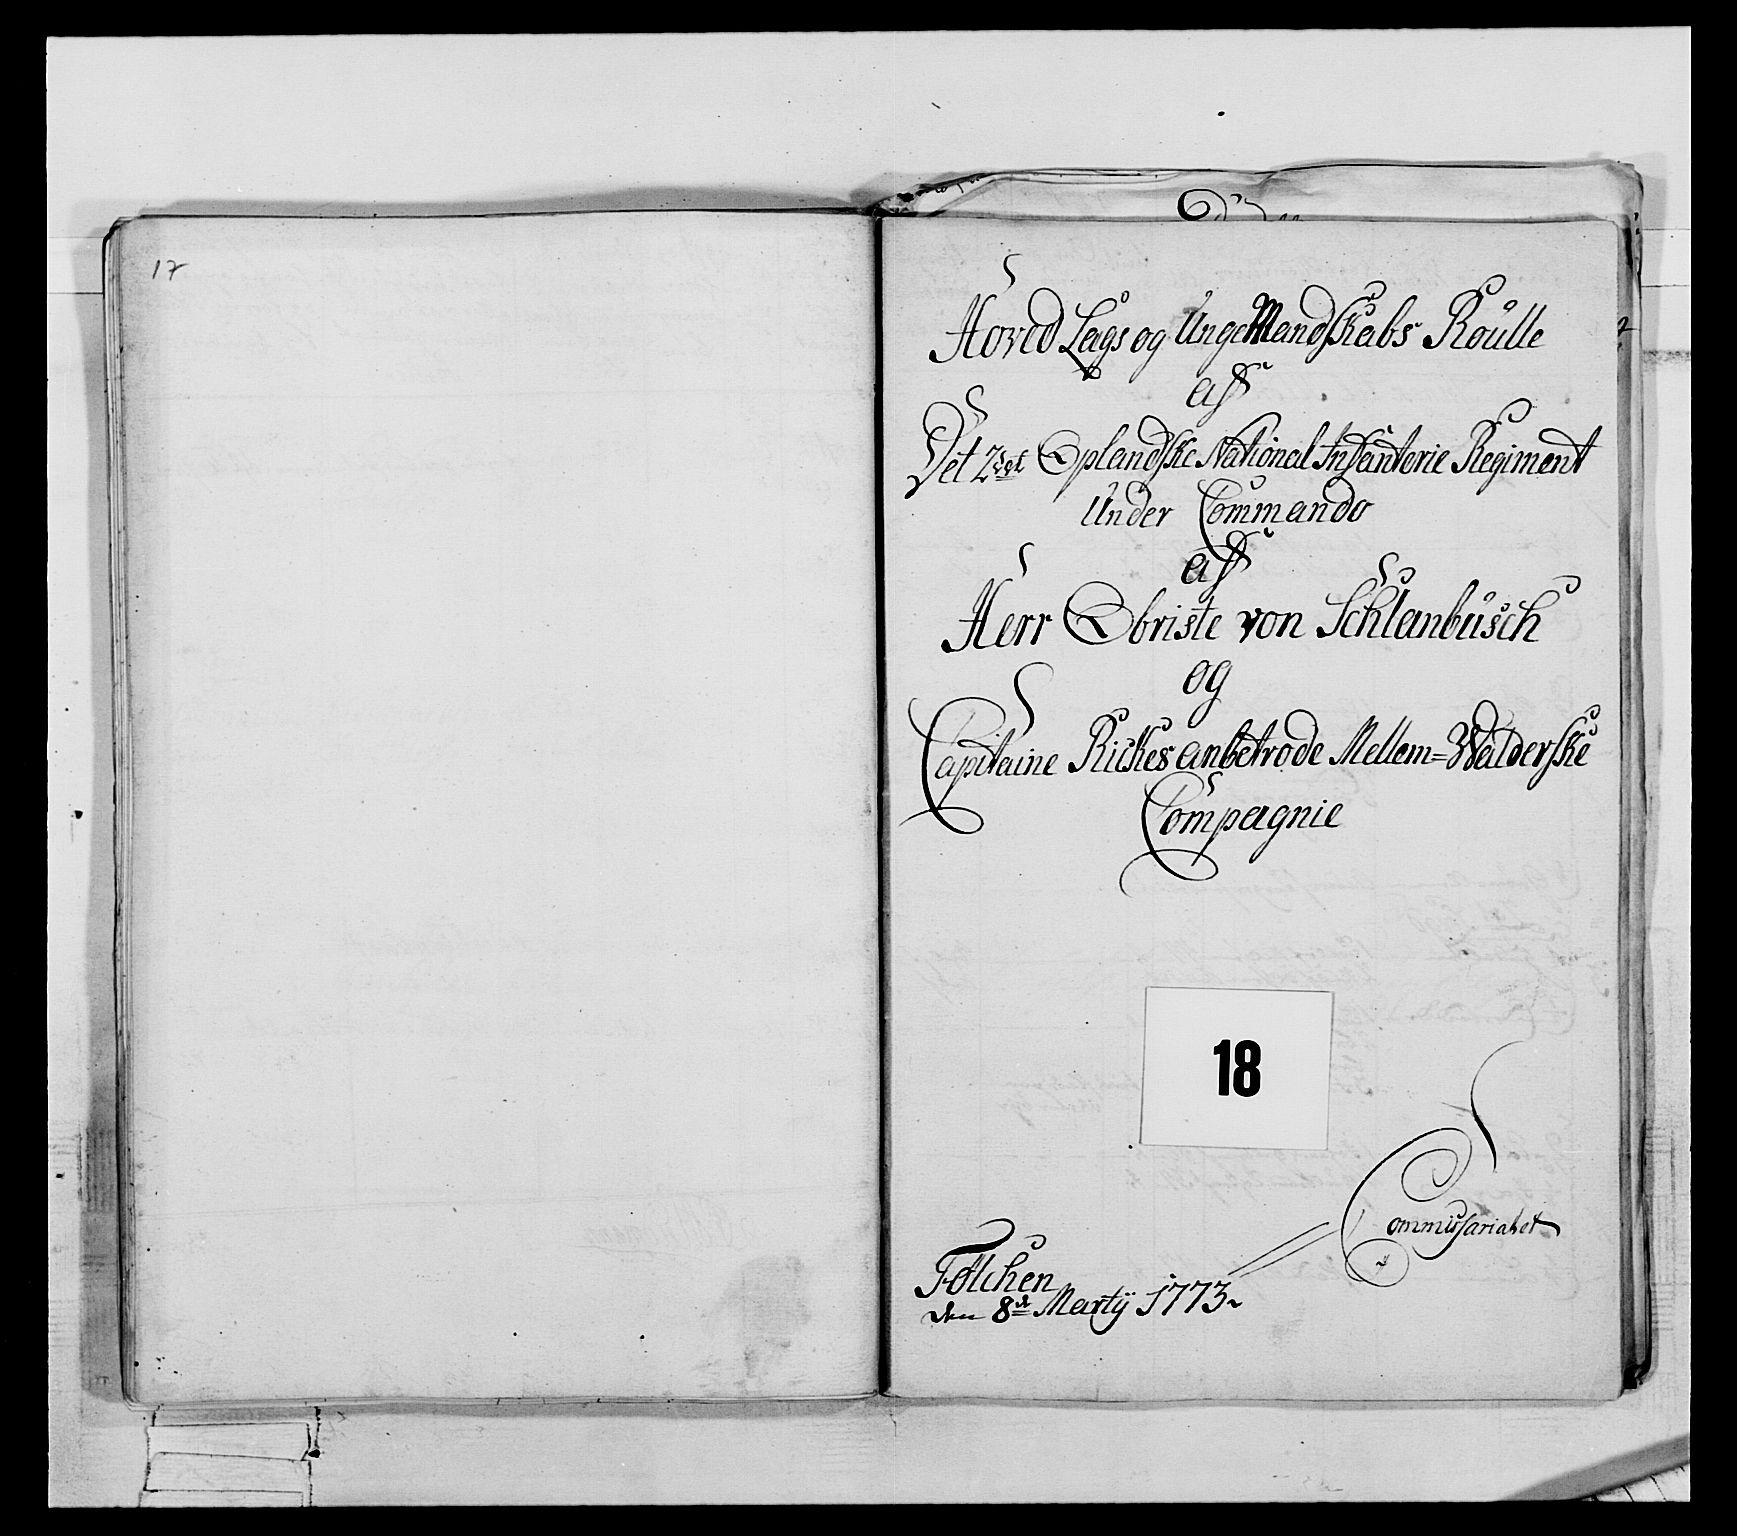 17
Hoved Lags og Unge Mandskabs Roulle
aff
Det 2det Oplandske National Infanterie Regiment
Under Commando
aff
Herr Obriste von Schlanbusch
og
Capitaine Rickes anbetrode Mellem=Walderske
Compagnie
18
Commissariatet
den 8de Martij 1773